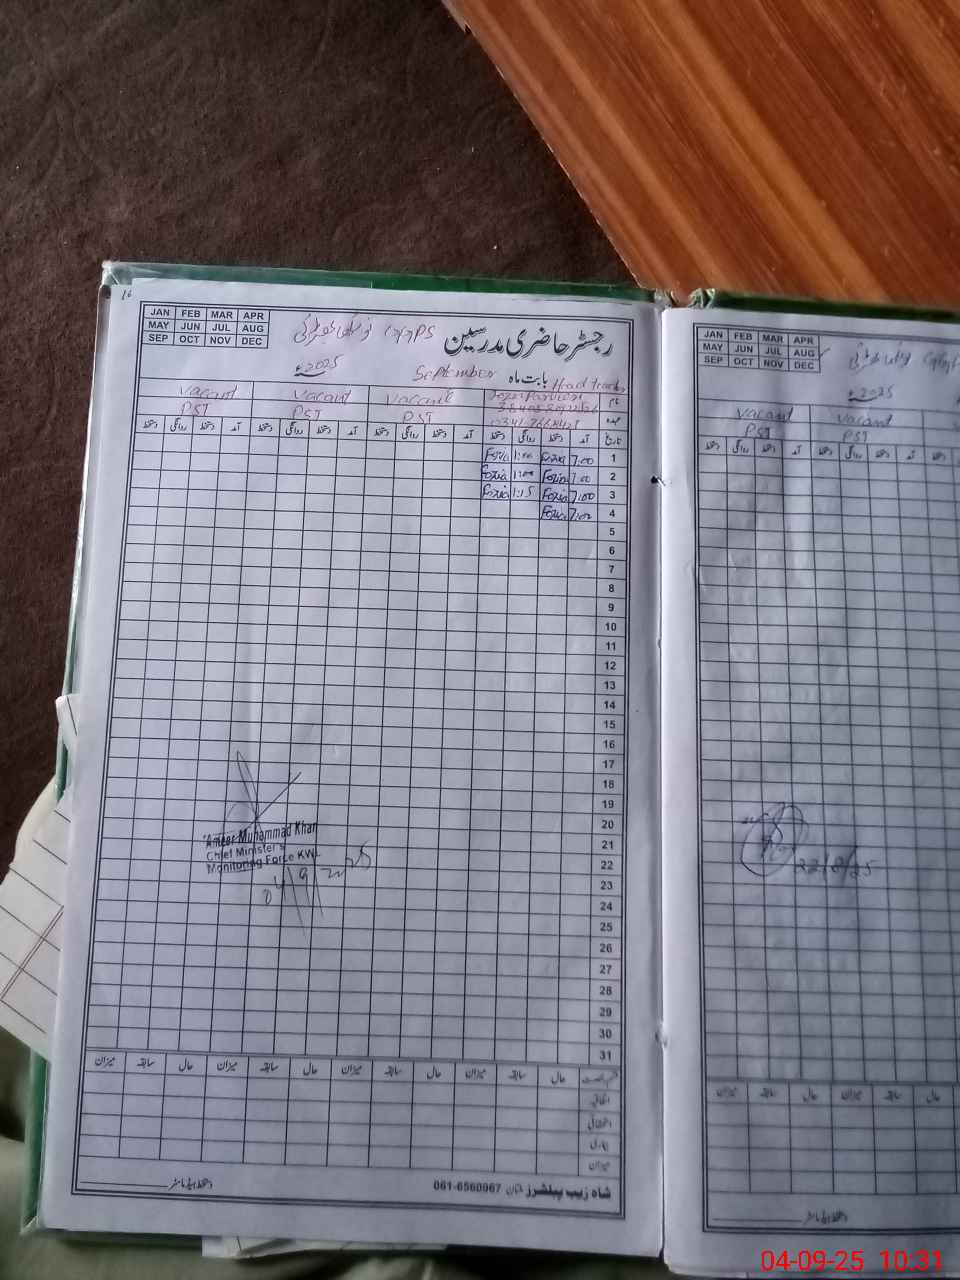 16
JAN FEB MAR APR
MAY JUN JUL AUG
SEP OCT NOV DEC
PS
رجسٹر حاضری مدرسین
2025ء
September بابت ماہ
Head
Vacant Vacant Vacant نام
PST PST PST عہدہ
دستخط روانگی دستخط آمد دستخط روانگی دستخط آمد دستخط روانگی دستخط آمد دستخط روانگی دستخط آمد تاریخ
Fozia 1:00 Fozia 7:00 1
Fozia 1:00 Fozia 7:00 2
Fozia 1:15 Fozia 7:00 3
Fozia 7:00 4
5
6
7
8
9
10
11
12
13
14
15
16
17
18
19
20
21
22
23
24
25
26
27
28
29
30
31
Ameer Muhammad Khan
Chief Minister's
Monitoring Force KWL
04/9/2025
میزان سابقہ حال میزان سابقہ حال میزان سابقہ حال میزان سابقہ حال
اتفاقی
میزان
دستخط ہیڈ ماسٹر
شاہ زیب پبلشرز ملتان 061-6560967
JAN FEB MAR APR
MAY JUN JUL AUG
SEP OCT NOV DEC
2025ء
Vacant Vacant
PST PST
دستخط روانگی دستخط آمد دستخط روانگی دستخط آمد
22/8/25
میزان سابقہ حال میزان سابقہ حال
دستخط ہیڈ ماسٹر
04-09-25 10:31